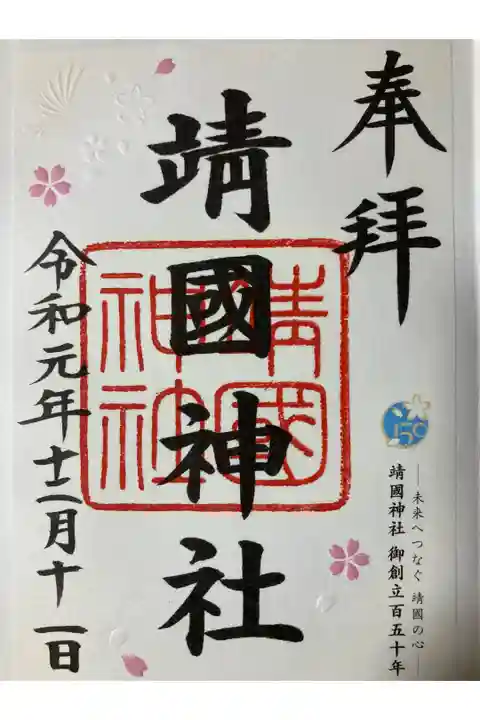 奉拝
150
―未来へつなぐ 靖國の心―
靖國神社 御創立百五十年
靖國神社
靖國神社
令和元年十二月十一日